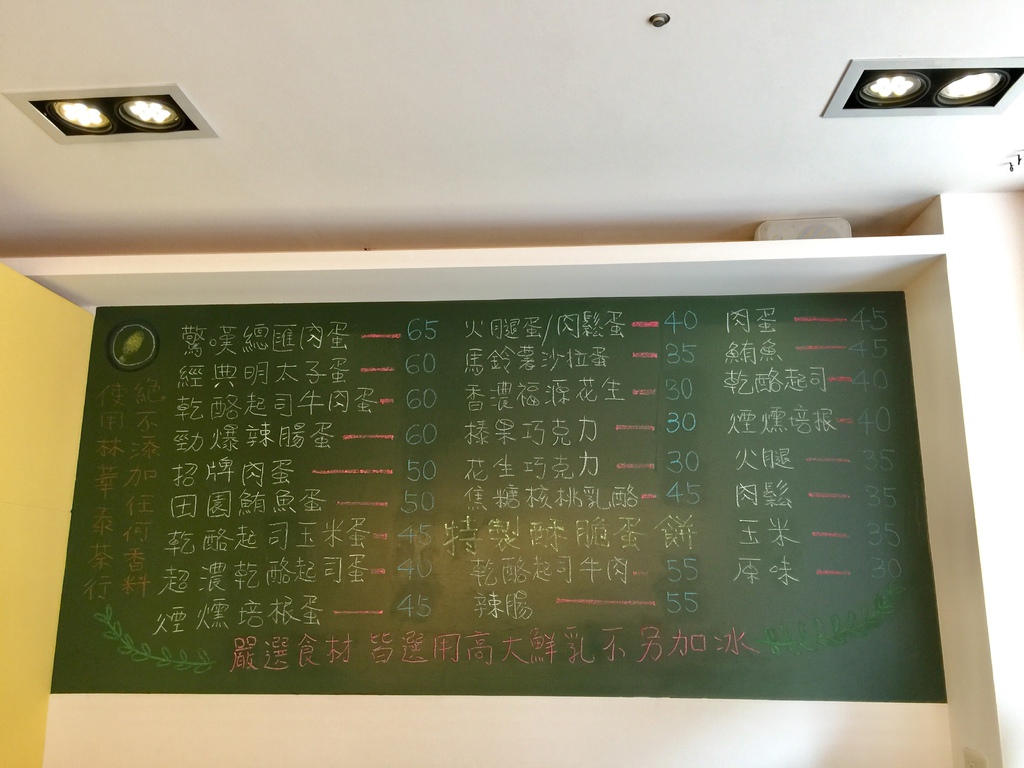 使用林華泰茶行
絕不添加任何香料
驚嘆總匯肉蛋 65
經典明太子蛋 60
乾酪起司牛肉蛋 60
勁爆辣腸蛋 60
招牌肉蛋 50
田園鮪魚蛋 50
乾酪起司玉米蛋 45
超濃乾酪起司蛋 40
煙燻培根蛋 45
火腿蛋/肉鬆蛋 40
馬鈴薯沙拉蛋 35
香濃福源花生 30
榛果巧克力 30
花生巧克力 30
焦糖核桃乳酪 45
特製酥脆蛋餅
乾酪起司牛肉 55
辣腸 55
肉蛋 45
鮪魚 45
乾酪起司 40
煙燻培根 40
火腿 35
肉鬆 35
玉米 35
原味 30
嚴選食材 皆選用高大鮮乳不另加冰